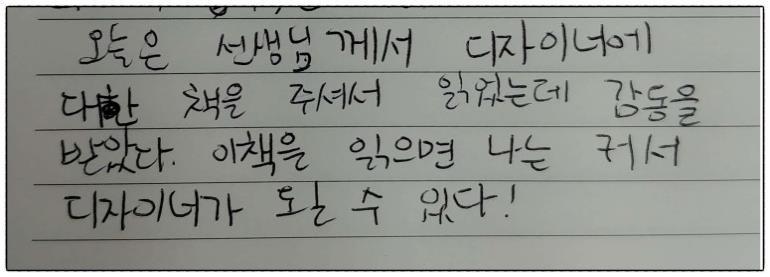 오늘은 선생님께서 디자이너에
대한 책을 주셔서 읽었는데 감동을
받았다. 이책을 읽으면 나는 커서
디자이너가 될 수 있다!